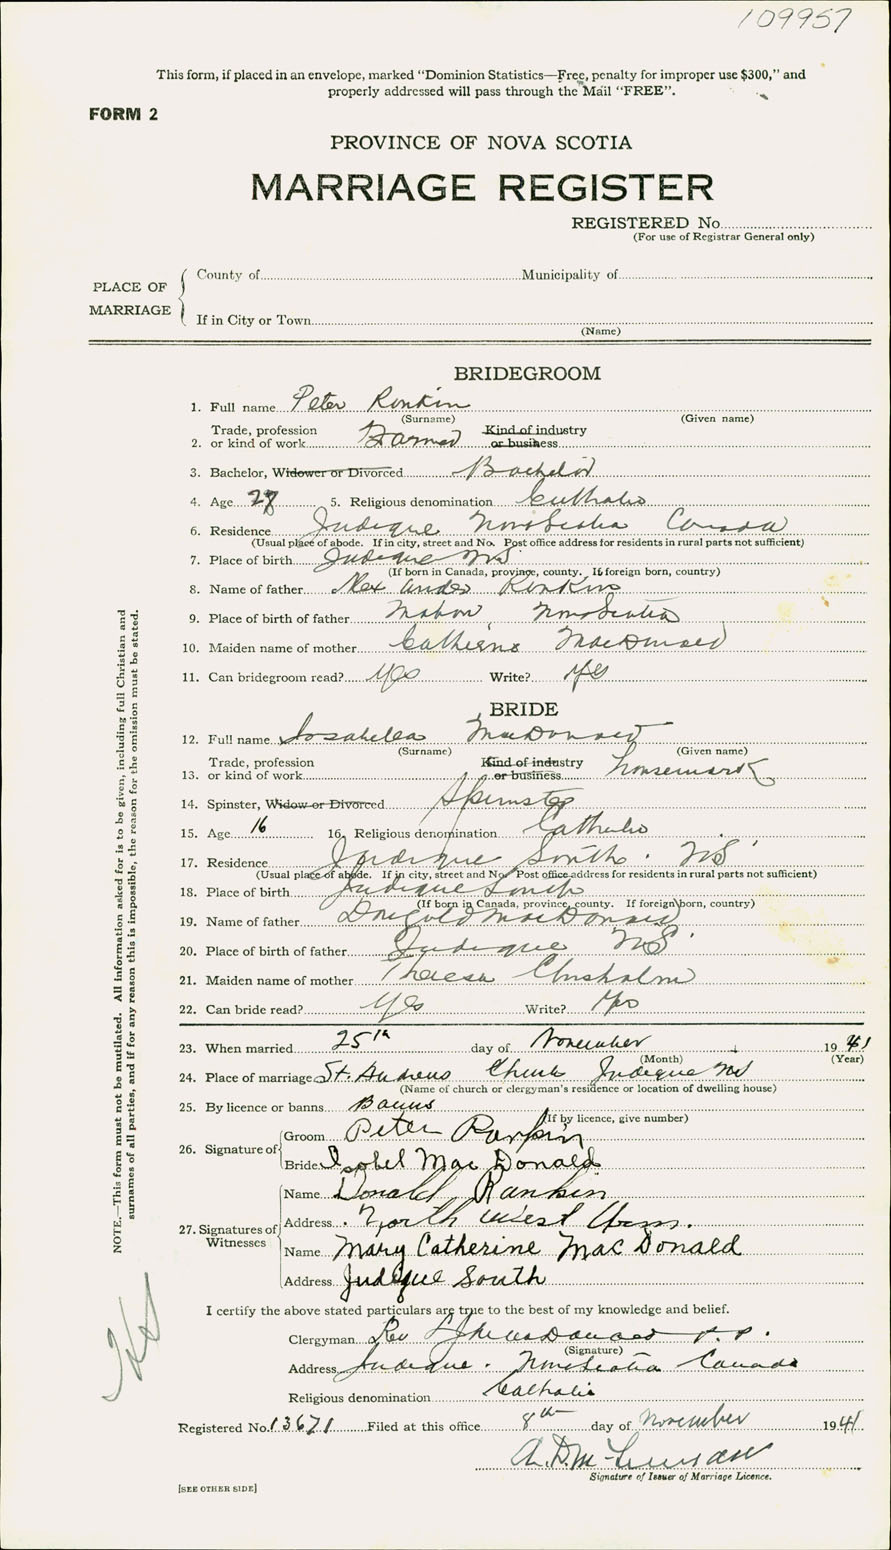 109957
This form, if placed in an envelope, marked "Dominion Statistics—Free, penalty for improper use $300," and
properly addressed will pass through the Mail "FREE".
FORM 2
PROVINCE OF NOVA SCOTIA
MARRIAGE REGISTER
REGISTERED No.
(For use of Registrar General only)
PLACE OF MARRIAGE
County of Municipality of
If in City or Town
(Name)
BRIDEGROOM
1. Full name Peter Rankin
(Surname) (Given name)
Trade, profession Kind of industry
2. or kind of work Farmer or business
3. Bachelor, Widower or Divorced Bachelor
4. Age 27 5. Religious denomination Catholic
6. Residence Judique Nova Scotia Canada
(Usual place of abode. If in city, street and No. Post office address for residents in rural parts not sufficient)
7. Place of birth Judique NS
(If born in Canada, province, county. If foreign born, country)
8. Name of father Alexander Rankin
9. Place of birth of father Mabou Nova Scotia
10. Maiden name of mother Catherine MacDonald
11. Can bridegroom read? Yes Write? Yes
BRIDE
12. Full name Isabella MacDonald
(Surname) (Given name)
Trade, profession Kind of industry
13. or kind of work or business housework
14. Spinster, Widow or Divorced Spinster
15. Age 16 16. Religious denomination Catholic
17. Residence Judique South. NS
(Usual place of abode. If in city, street and No. Post office address for residents in rural parts not sufficient)
18. Place of birth Judique South
(If born in Canada, province, county. If foreign born, country)
19. Name of father Dougald MacDonald
20. Place of birth of father Judique NS
21. Maiden name of mother Theresa Chisholm
22. Can bride read? Yes Write? Yes
23. When married 25th day of November 1941
(Month) (Year)
24. Place of marriage St. Andrews Church Judique NS
(Name of church or clergyman's residence or location of dwelling house)
25. By licence or banns Banns
(If by licence, give number)
26. Signature of
Groom Peter Rankin
Bride Isobel Mac Donald
27. Signatures of Witnesses
Name Donald Rankin
Address North West Arm.
Name Mary Catherine Mac Donald
Address Judique South
I certify the above stated particulars are true to the best of my knowledge and belief.
Clergyman Rev P.P.
(Signature)
Address Judique. Nova Scotia Canada
Religious denomination Catholic
Registered No. 13671 Filed at this office 8th day of November 1941
A.D.
Signature of Issuer of Marriage Licence.
[SEE OTHER SIDE]
NOTE.—This form must not be mutilated. All information asked for is to be given, including full Christian and
surnames of all parties, and if for any reason this is impossible, the reason for the omission must be stated.